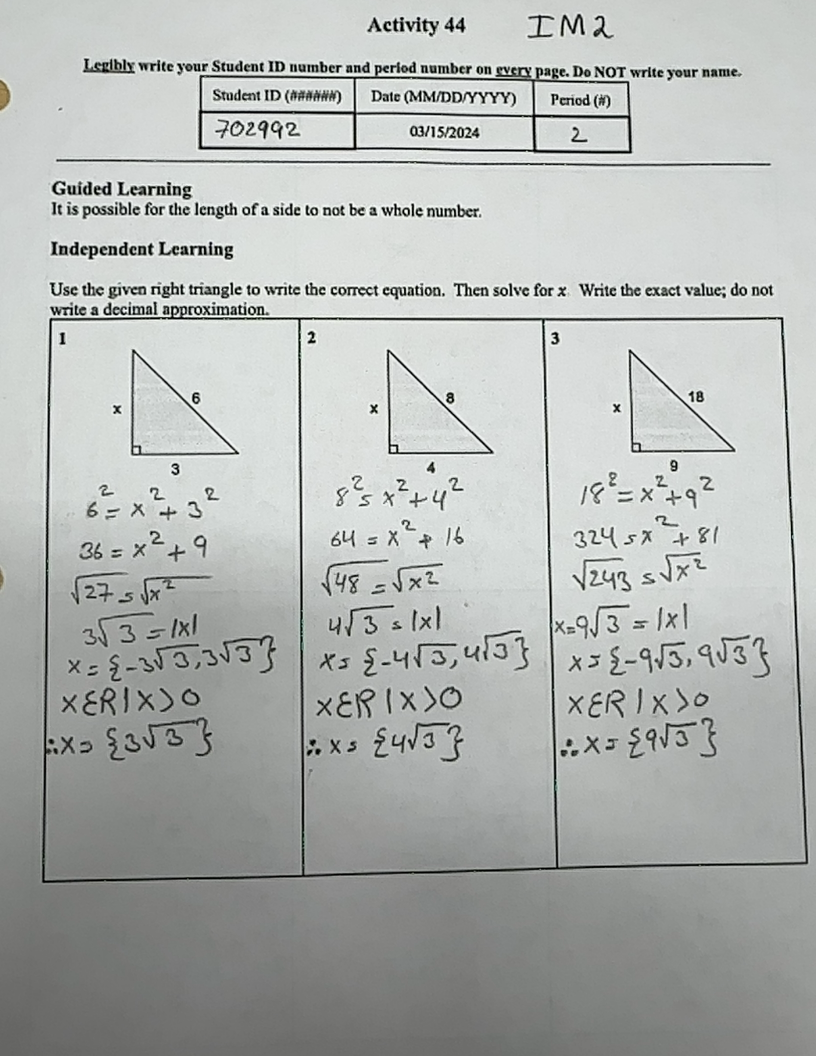 Activity 44 IM2
Legibly write your Student ID number and period number on every page. Do NOT write your name.
Student ID (######) Date (MM/DD/YYYY) Period (#)
702992 03/15/2024 2
Guided Learning
It is possible for the length of a side to not be a whole number.
Independent Learning
Use the given right triangle to write the correct equation. Then solve for x. Write the exact value; do not
write a decimal approximation.
1
x
6
3
6² = x² + 3²
36 = x² + 9
√27 = √x²
3√3 = |x|
x = {-3√3, 3√3}
xƐR | x > 0
∴ x = {3√3}
2
x
8
4
8² = x² + 4²
64 = x² + 16
√48 = √x²
4√3 = |x|
x = {-4√3, 4√3}
xƐR | x > 0
∴ x = {4√3}
3
x
18
9
18² = x² + 9²
324 = x² + 81
√243 = √x²
x = 9√3 = |x|
x = {-9√3, 9√3}
xƐR | x > 0
∴ x = {9√3}